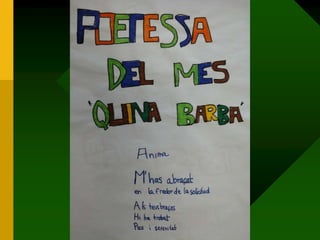 POETESSA
DEL MES
'QUINA BARBA'
Anima
M'has abraçat
en la fredor de la soledad
Als teus braços
Hi he trobat
Pau i serenitat